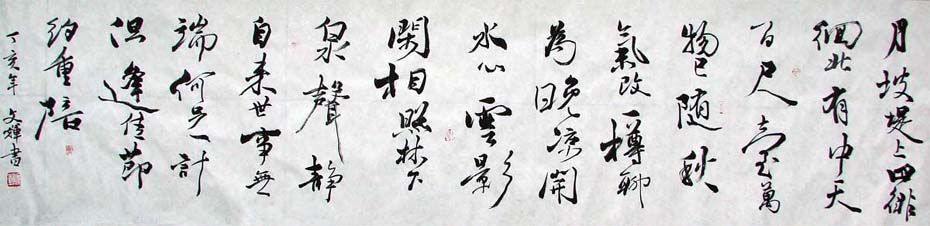 月坡堤上四徘
徊北有中天
百尺臺萬
物已随秋
氣改一樽聊
為晚涼開
水心雲影
閑相照林下
泉聲静
自来世事無
端何足計
但逢佳節
约重陪
丁亥年 文輝書